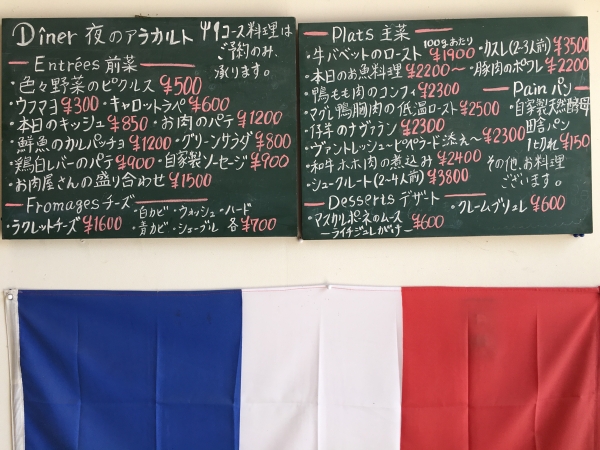 Dîner 夜のアラカルト
コース料理は
ご予約のみ、
承ります。
Entrées 前菜
色々野菜のピクルス ¥500
・ウフマヨ ¥300 ・キャロットラペ ¥600
・本日のキッシュ ¥850 ・お肉のパテ ¥1200
・鮮魚のカルパッチョ ¥1200 ・グリーンサラダ ¥800
・鶏白レバーのパテ ¥900 ・自家製ソーセージ ¥900
・お肉屋さんの盛り合わせ ¥1500
Fromages チーズ
・ラクレットチーズ ¥1600
・白カビ・ウォッシュ・ハード
・青カビ・シェーブル 各¥700
Plats 主菜
・牛バベットのロースト 100gあたり ¥1900 ・カスレ(2~3人前) ¥3500
・本日のお魚料理 ¥2200~ ・豚肉のポワレ ¥2200
・鴨もも肉のコンフィ ¥2300
・マグレ鴨胸肉の低温ロースト ¥2500
・仔羊のナヴァラン ¥2300
・ヴァントレッシュ~ピペラード添え~ ¥2300
・和牛ホホ肉の煮込み ¥2400
・シュークルート(2~4人前) ¥3800
Pain パン
・自家製天然酵母
田舎パン
1ピキれ ¥150
その他、お料理
ございます。
Desserts デザート
・マスカルポネのムース
ーライチジュレがけー ¥600
・クレームブリュレ ¥600